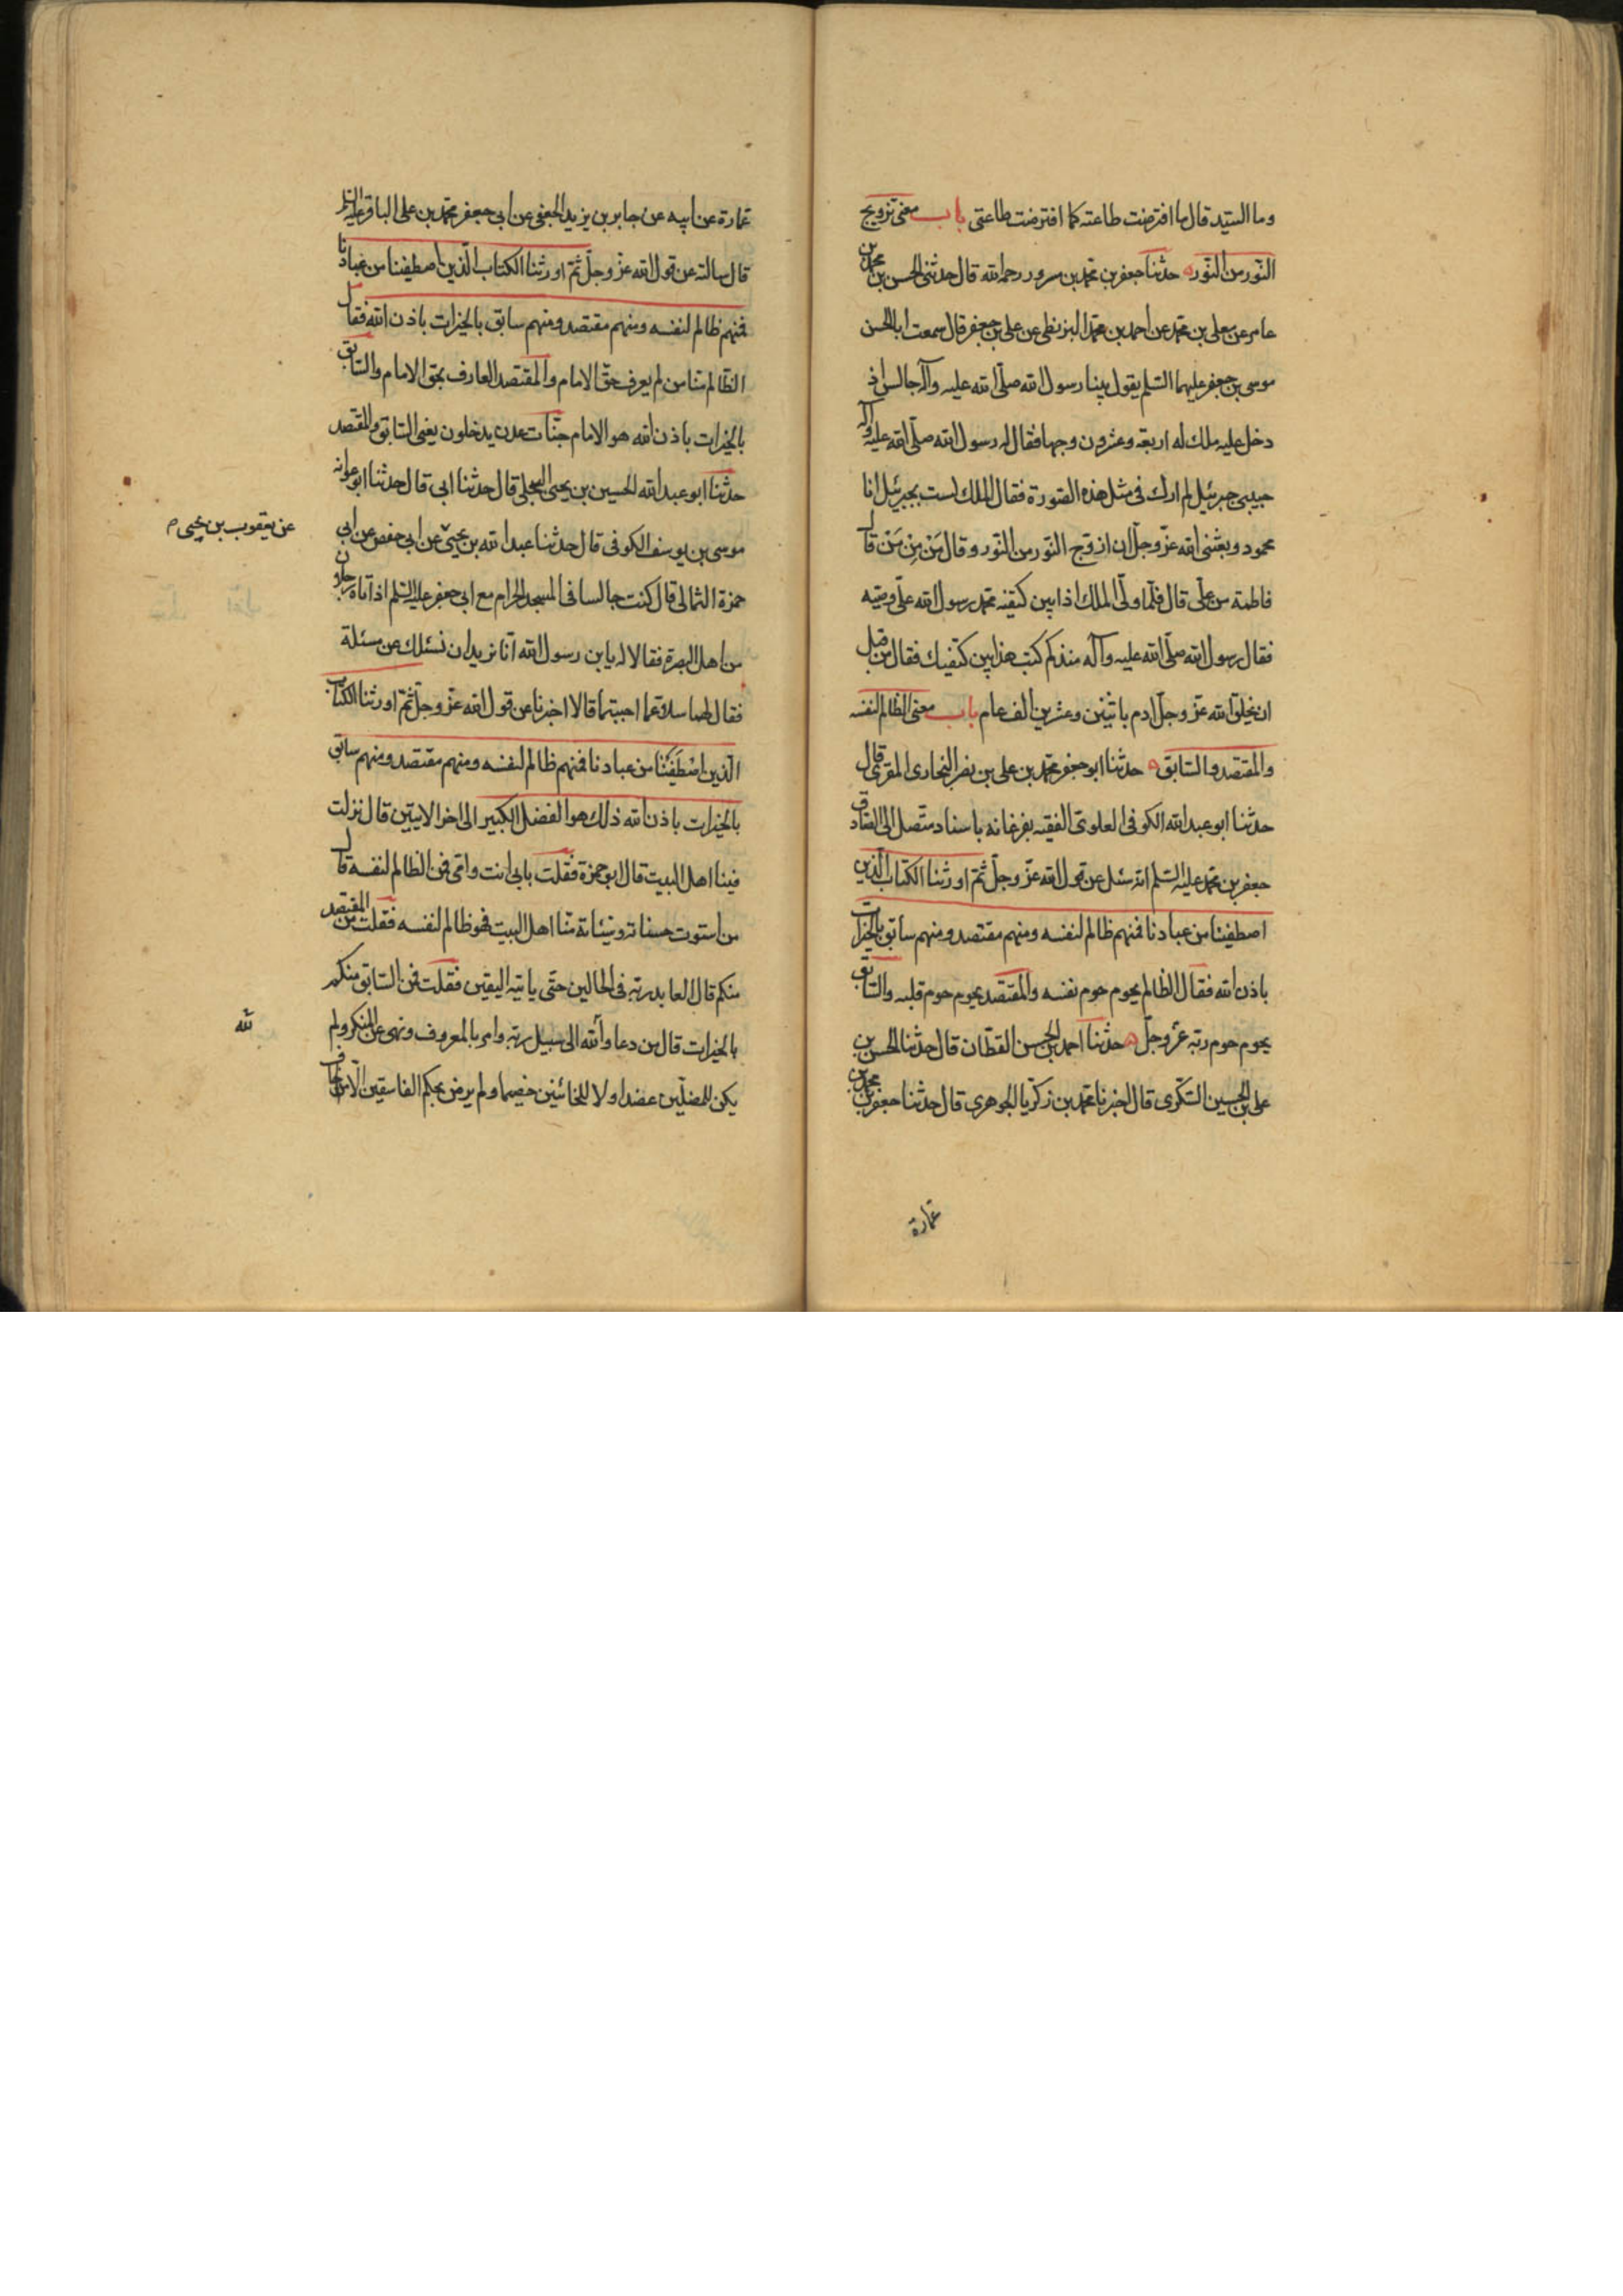 وما السيّد قال ما افترضت طاعته كما افترضت طاعتى باب معنى تزويج
النّور من النّور حدثنا جعفر بن محمّد بن مسرور رحمه الله قال حدثنى الحسن بن محمد بن
عامر عن معلى بن محمّد عن احمد بن محمّد البزنطى عن على بن جعفر قال سمعت ابا الحسن
موسى بن جعفر عليهما السّلم يقول بينا رسول الله صلّى الله عليه وآله جالس اذ
دخل عليه ملك له اربعة وعشرون وجها فقال له رسول الله صلّى الله عليه وآله
حبيبى جبرئيل لم ارك فى مثل هذه الصّورة فقال الملك لست بجبرئيل انا
محمود وبعثنى الله عزّ وجلّ ان ازوّج النّور من النّور وقال مَنْ مِنْ مَنْ قال
فاطمة من على قال فلمّا ولّى الملك اذا بين كتفيه محمّد رسول الله علىّ وصيّه
فقال رسول الله صلّى الله عليه وآله منذ كم كتب هذا بين كتفيك فقال من قبل
ان يخلق الله عزّ وجلّ ادم باثنين وعشرين الف عام باب معنى الظالم لنفسه
والمقتصد والسّابق حدثنا ابو جعفر محمّد بن على بن نصر البخارى المقرى قال
حدثنا ابو عبد الله الكوفى العلوىّ الفقيه بفرغانه باسناد متّصل الى الصّادق
جعفر بن محمّد عليه السّلم انّه سئل عن قول الله عزّ وجلّ ثمّ اورثنا الكتاب الّذين
اصطفينا من عبادنا فمنهم ظالم لنفسه ومنهم مقتصد ومنهم سابق بالخيرات
باذن الله فقال الظالم يحوم حوم نفسه والمقتصد يحوم حوم قلبه والسّابق
يحوم حوم ربّه عزّ وجلّ حدثنا احمد بن الحسن القطّان قال حدثنا الحسن بن
على بن الحسين السّكّرى قال اخبرنا محمّد بن زكرّيا الجوهرى قال حدثنا جعفر بن محمد بن
عمارة
عمارة عن ابيه عن جابر بن يزيد الجعفى عن ابى جعفر محمّد بن على الباقر عليه السّلم
قال سالته عن قول الله عزّ وجلّ ثمّ اورثنا الكتاب الّذين اصطفينا من عبادنا
فمنهم ظالم لنفسه ومنهم مقتصد ومنهم سابق بالخيرات باذن الله فقال
الظّالم منّا من لم يعرف حقّ الامام والمقتصد العارف بحق الامام والسّابق
بالخيرات باذن الله هو الامام جنّات عدن يدخلون يعنى السّابق والمقتصد
حدثنا ابو عبد الله الحسين بن يحيى البجلى قال حدثنا ابى قال حدثنا ابو عوانه
موسى بن يوسف الكوفى قال حدثنا عبد الله بن يحيى عن ابى حفص عن ابى
عن يعقوب بن يحيى م
حمزة الثمالى قال كنت جالسا فى المسجد الحرام مع ابى جعفر عليه السّلم اذ اتاه رجلان
من اهل البصرة فقالا له يا بن رسول الله انّا نريد ان نسئلك عن مسئلة
فقال لهما سلا عمّا احببتما قالا اخبرنا عن قول الله عزّ وجلّ ثمّ اورثنا الكتاب
الّذين اصْطَفَيْنَا من عبادنا فمنهم ظالم لنفسه ومنهم مقتصد ومنهم سابق
بالخيرات باذن الله ذلك هو الفضل الكبير الى اخر الايتين قال نزلت
فينا اهل البيت قال ابو حمزة فقلت بابى انت وامّى فمن الظالم لنفسه قال
من استوت حسناته وسيّئاته منّا اهل البيت فهو ظالم لنفسه فقلت من المقتصد
منكم قال العابد ربّه فى الحالين حتّى ياتيه اليقين فقلت فمن السّابق منكم
بالخيرات قال من دعا والله الى سبيل ربّه وامر بالمعروف ونهى عن المنكر ولم
لله
يكن للمضلّين عضدا ولا للخائنين خصيما ولم يرض بحكم الفاسقين الّا من خاف